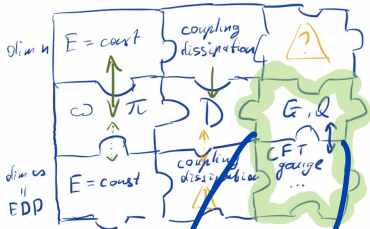 dim n
E = const
coupling
dissipation
?
ω π
D
G, Q
dim ∞
=
EDD
E = const
coupling
dissipation
CFT
gauge
...